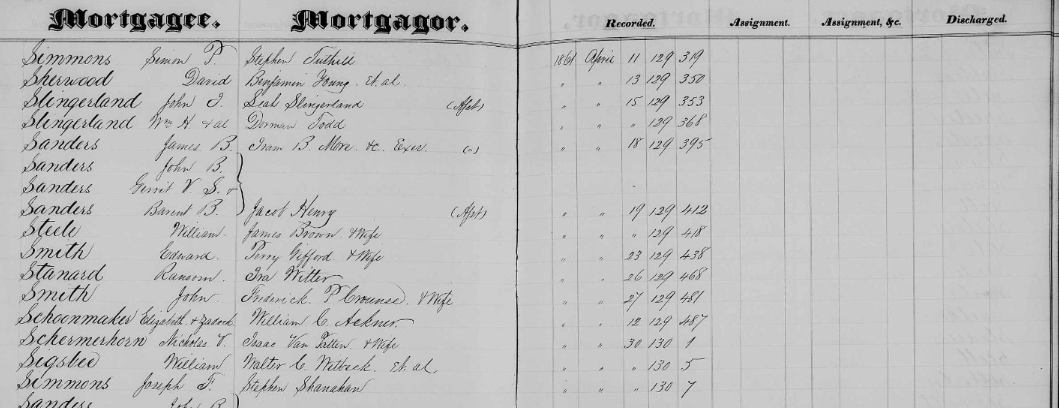 Mortgagee. Mortgagor. Recorded. Assignment. Assignment, &c. Discharged.
Simmons Simon P. Stephen Tuthill 1861 April 11 129 319
Sherwood David Benjamin Young. Et. al. " " 13 129 350
Slingerland John I. Leah Slingerland " " 15 129 353
Slingerland Wm H. & al Dorman Todd " " " 129 368
Sanders James B. B. More &c. Exer. " " 18 129 395
Sanders John B.
Sanders Gerrit V. S. &
Sanders Barent B. Jacob Henry " " 19 129 412
Steele William. James Brown & Wife " " " 129 418
Smith Edward. Perry Gifford & Wife " " 23 129 438
Stanard Ransom. Ira Witter " " 26 129 468
Smith John Frederick. P Crounse. & Wife " " 27 129 481
Schoonmaker Elizabeth & Zadock William C. Ackner. " " 12 129 487
Schermerhorn Nicholas V. Isaac Van Patten & Wife " " 30 130 1
Sigsbee William Walter C. Witbeck. Et. al. " " " 130 5
Simmons Joseph F. Stephen Shanahan " " " 130 7
Sanders John B.